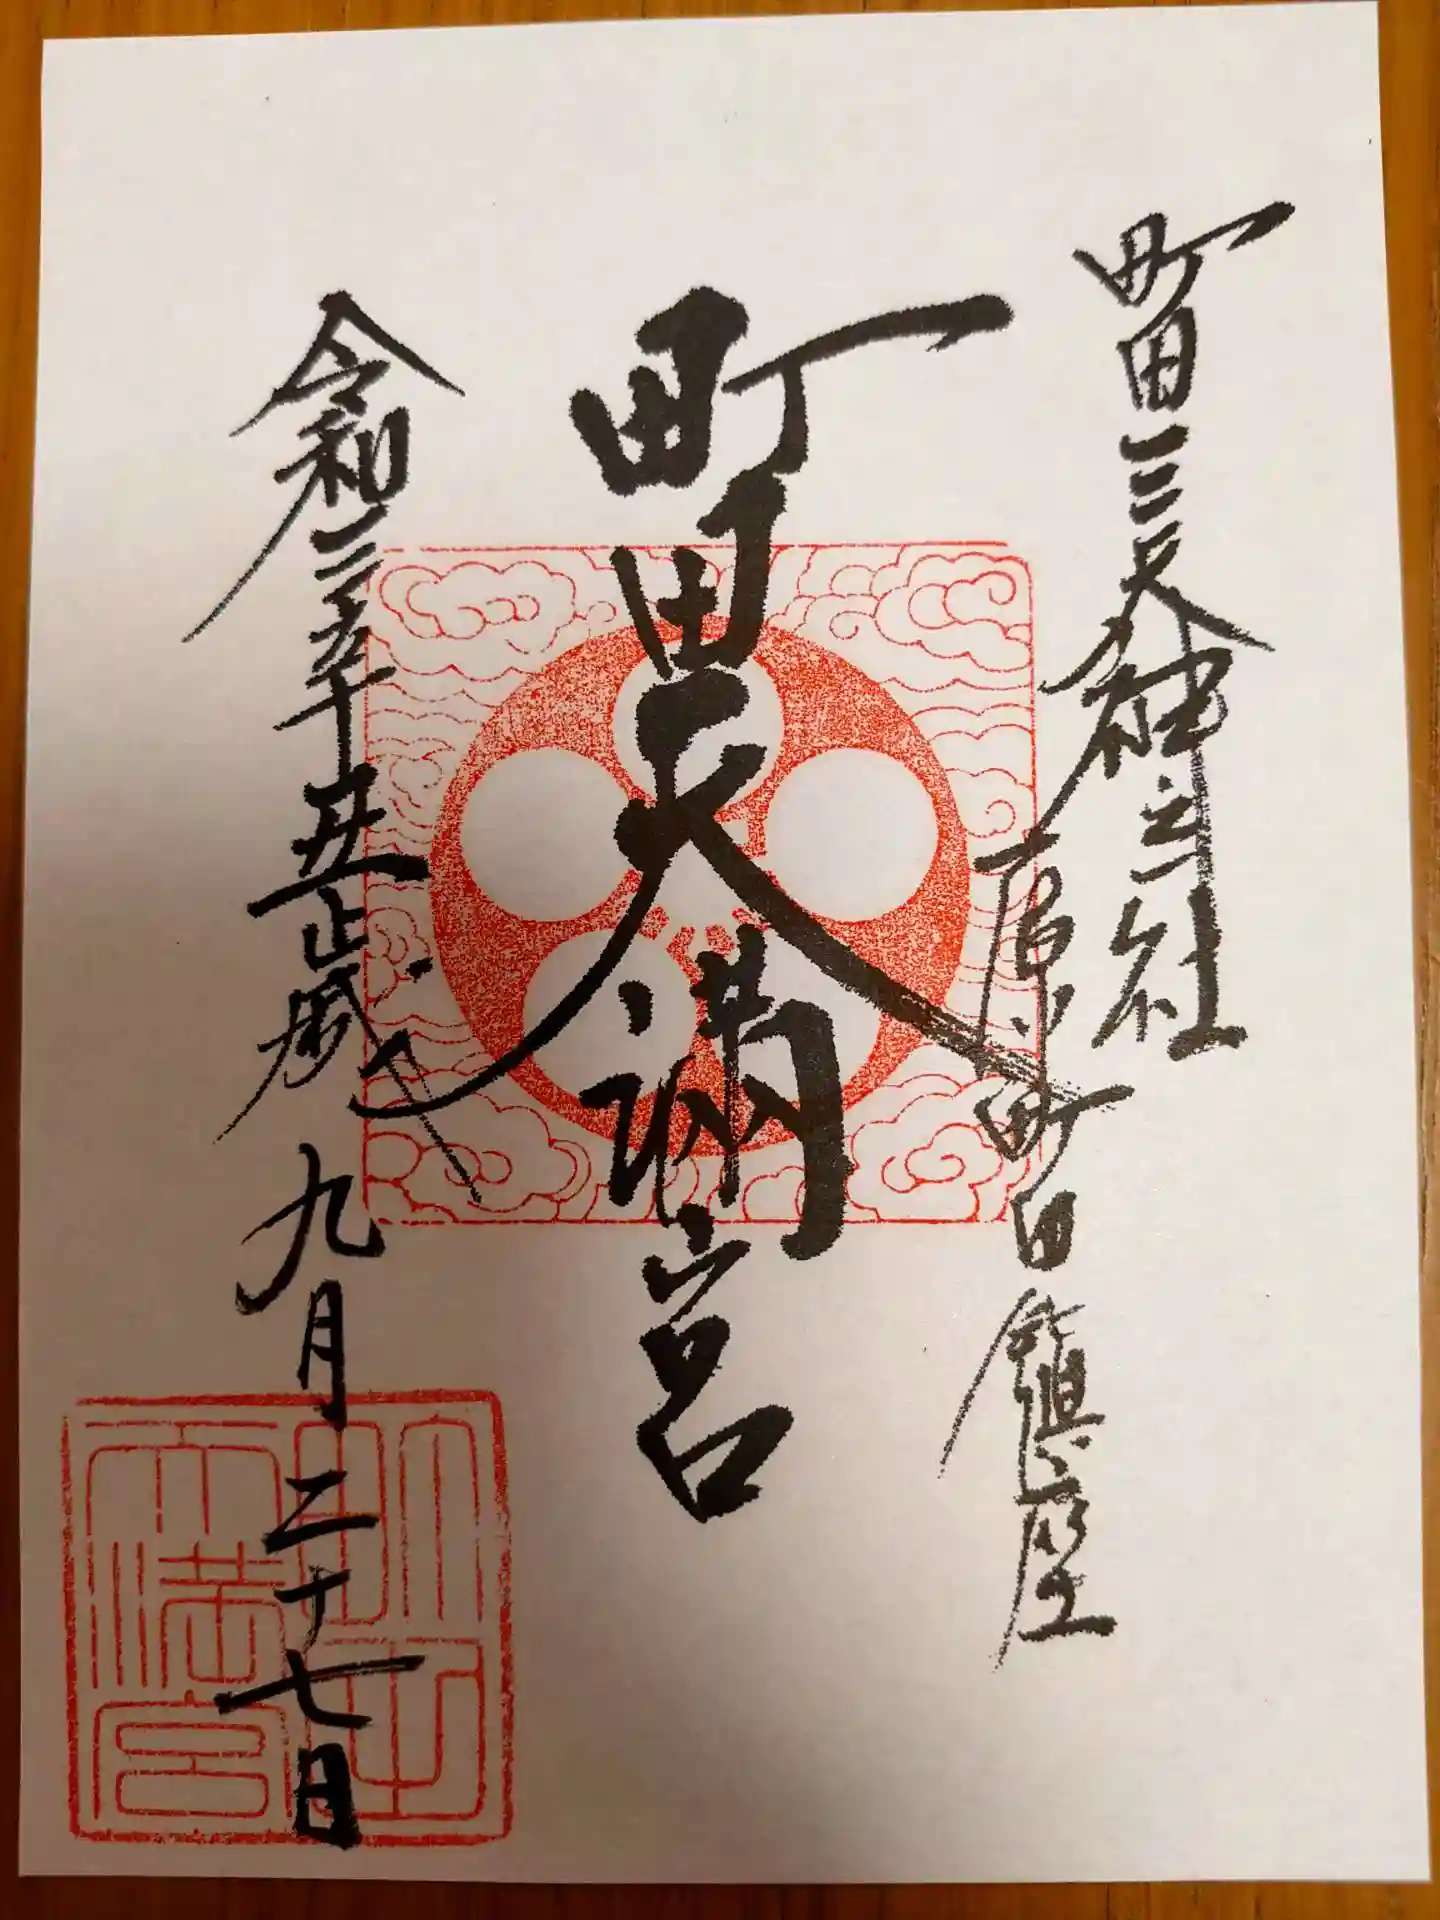 町田三天神之社
原町田鎮座
町田天満宮
令和三辛丑歳九月二十七日